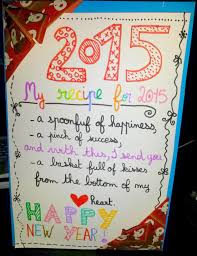 2015
My recipe for 2015
- a spoonful of happiness,
- a pinch of success,
and with this, I send you
- a basket full of kisses
from the bottom of my
heart.
HAPPY
NEW YEAR!